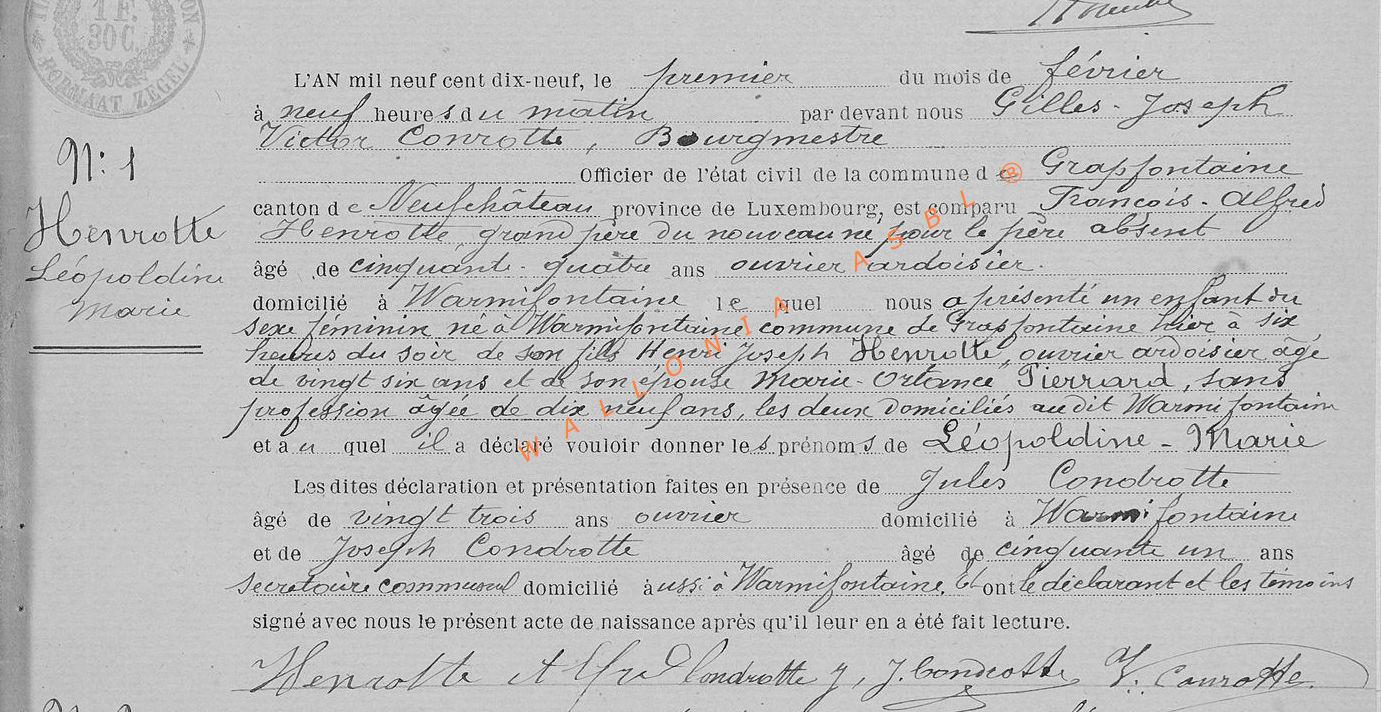 1 F. 30 C.
FORMAAT ZEGEL
L'AN mil neuf cent dix-neuf, le premier du mois de février
à neuf heures du matin par devant nous Gilles-Joseph
Victor Conrotte, Bourgmestre
Officier de l'état civil de la commune de Grapfontaine
canton de Neufchâteau province de Luxembourg, est comparu François-Alfred
Henrotte grand père du nouveau né pour le père absent
âgé de cinquante-quatre ans ouvrier ardoisier.
domicilié à Warmifontaine lequel nous a présenté un enfant du
sexe féminin né à Warmifontaine commune de Grapfontaine hier à six
heures du soir de son fils Henri Joseph Henrotte, ouvrier ardoisier âgé
de vingt six ans et de son épouse Marie-Ortance Pierrard, sans
profession âgée de dix neuf ans, les deux domiciliés audit Warmifontaine
et au quel il a déclaré vouloir donner les prénoms de Léopoldine-Marie
Les dites déclaration et présentation faites en présence de Jules Condrotte
âgé de vingt trois ans ouvrier domicilié à Warmifontaine
et de Joseph Condrotte âgé de cinquante un ans
secrétaire communal domicilié aussi à Warmifontaine. Et ont le déclarant et les témoins
signé avec nous le présent acte de naissance après qu'il leur en a été fait lecture.
Henrotte Alfred Condrotte J, J. Condrotte V. Conrotte
N: 1
Henrotte
Léopoldine
Marie
WALLONIA ASBL ®